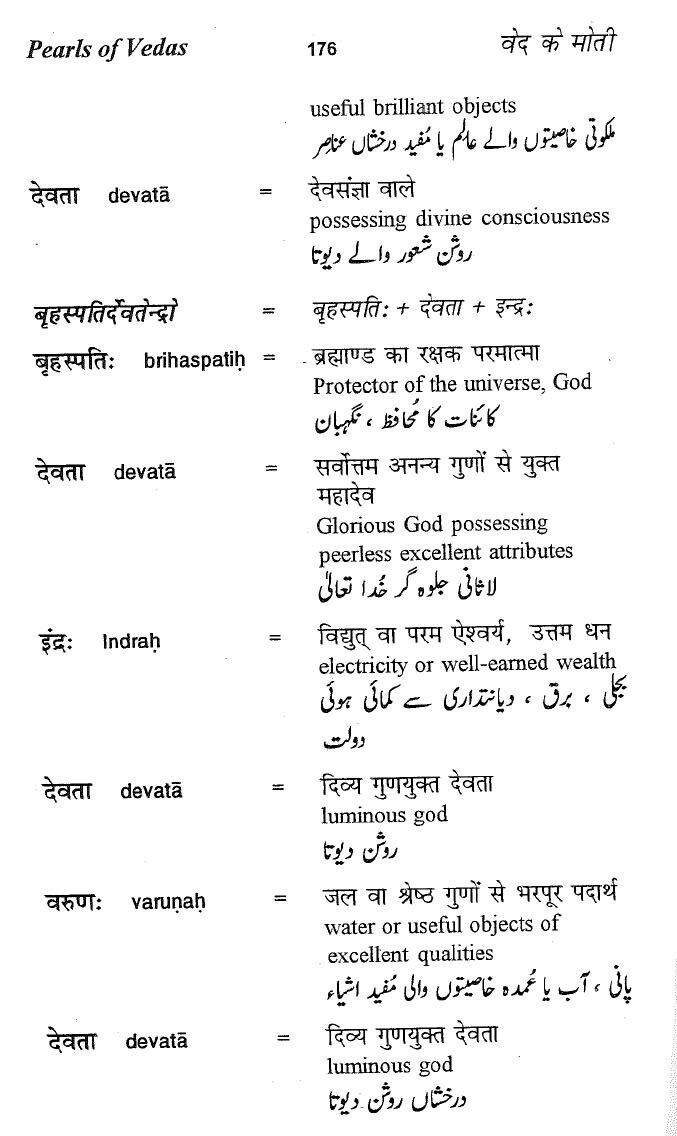 Pearls of Vedas 176 वेद के मोती
useful brilliant objects
ملکوتی خاصیتوں والے عالم یا مُفید درخشاں عناصر
देवता devatā = देवसंज्ञा वाले
possessing divine consciousness
روشن شعور والے دیوتا
बृहस्पतिर्देवतेन्द्रो = बृहस्पतिः + देवता + इन्द्रः
बृहस्पतिः brihaspatiḥ = ब्रह्माण्ड का रक्षक परमात्मा
Protector of the universe, God
کائنات کا مُحافظ ، نگہبان
देवता devatā = सर्वोत्तम अनन्य गुणों से युक्त
महादेव
Glorious God possessing
peerless excellent attributes
لاثانی جلوہ گر خُدا تعالیٰ
इंद्रः Indraḥ = विद्युत् वा परम ऐश्वर्य, उत्तम धन
electricity or well-earned wealth
بجلی ، برق ، دیانتداری سے کمائی ہوئی
دولت
देवता devatā = दिव्य गुणयुक्त देवता
luminous god
روشن دیوتا
वरुणः varuṇaḥ = जल वा श्रेष्ठ गुणों से भरपूर पदार्थ
water or useful objects of
excellent qualities
پانی ، آب یا عُمدہ خاصیتوں والی مُفید اشیاء
देवता devatā = दिव्य गुणयुक्त देवता
luminous god
درخشاں روشن دیوتا